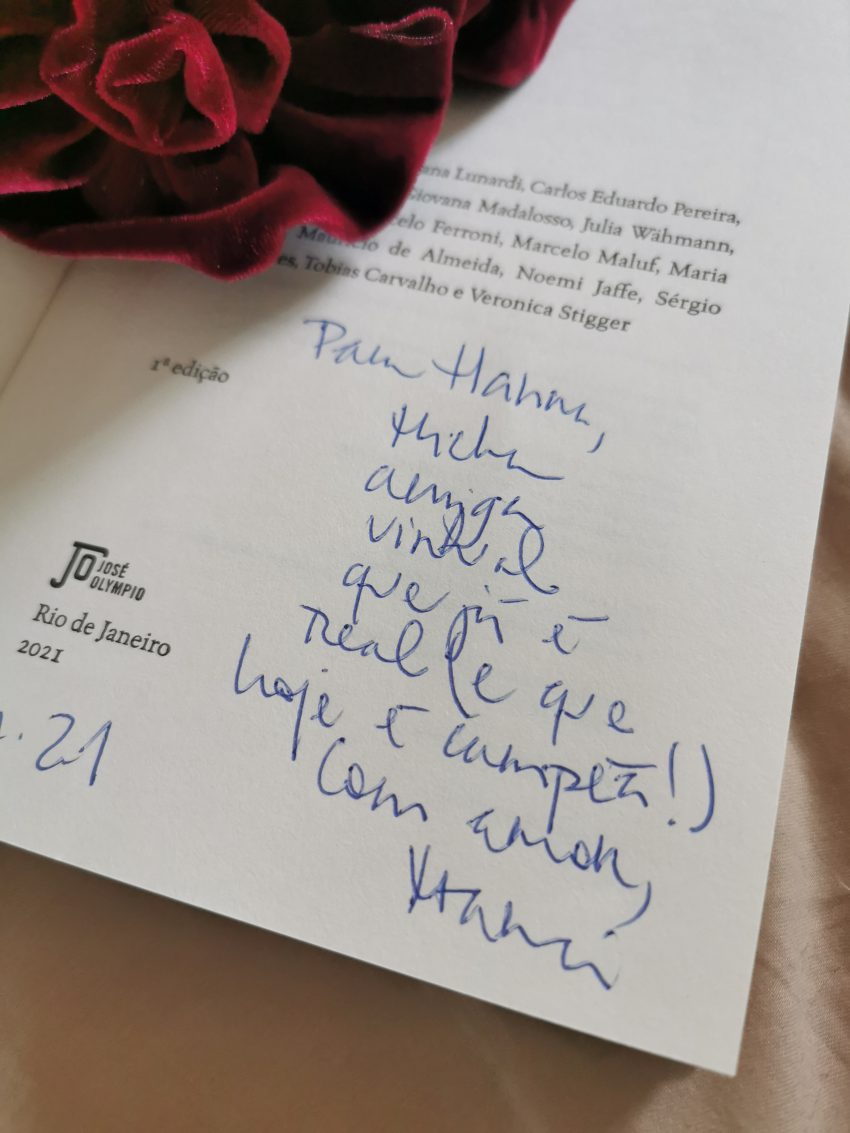 ana Lunardi, Carlos Eduardo Pereira,
Giovana Madalosso, Julia Wähmann,
celo Ferroni, Marcelo Maluf, Maria
Maurício de Almeida, Noemi Jaffe, Sérgio
es, Tobias Carvalho e Veronica Stigger
1ª edição
Para Hanna,
minha
amiga
virtual
que já é
real (e que
hoje é campeã!)
com amor,
JO JOSÉ
OLYMPIO
Rio de Janeiro
2021
.21